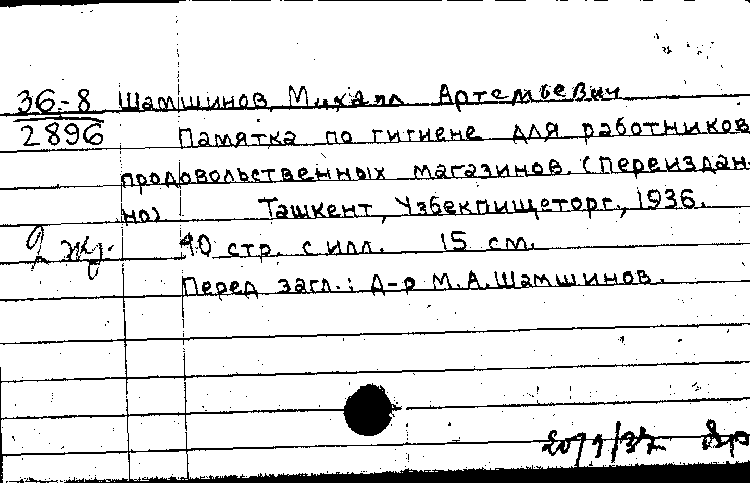 36-8 Шамшинов, Михаил Артемьевич
2896 Памятка по гигиене для работников
продовольственных магазинов. (Переиздан-
но) Ташкент, Узбекпищеторг, 1936.
2 жз. 40 стр. с илл. 15 см.
Перед загл.: Д-р М.А.Шамшинов.